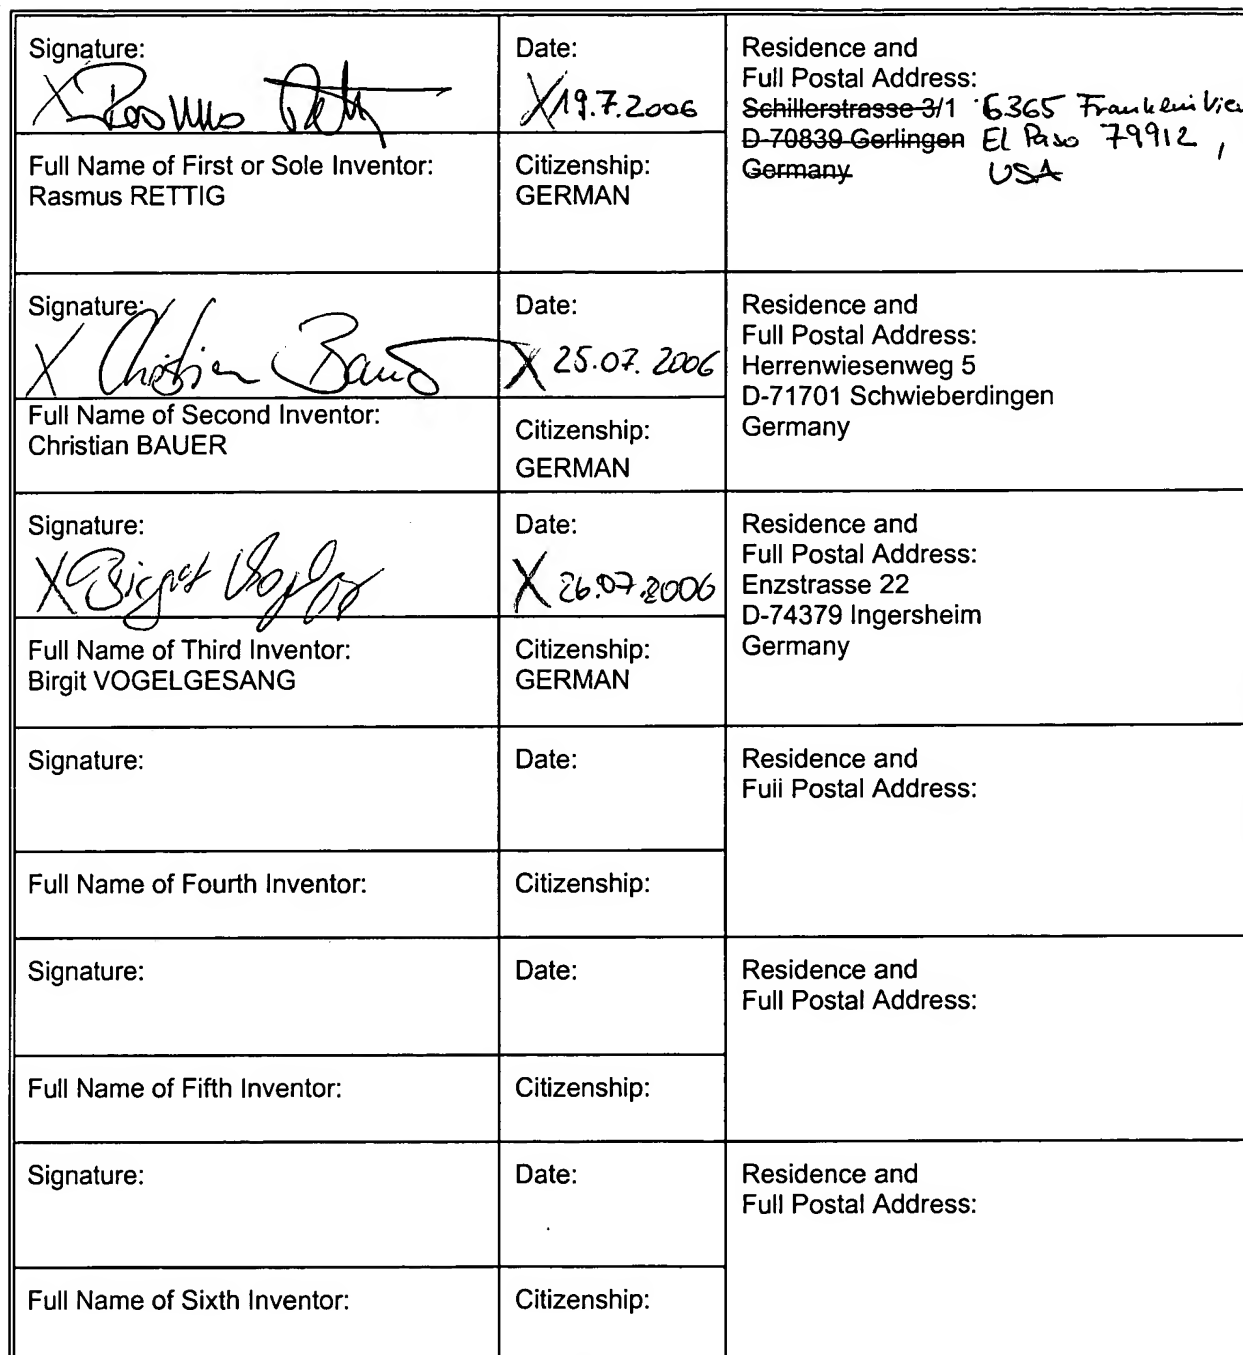 Signature:
X Rasmus Rettig
Date:
X 19.7.2006
Residence and
Full Postal Address:
Schillerstrasse 3/1 6365 Franklin
D-70839 Gerlingen El Paso 79912,
Germany USA
Full Name of First or Sole Inventor:
Rasmus RETTIG
Citizenship:
GERMAN
Signature:
X Christian Bauer
Date:
X 25.07.2006
Residence and
Full Postal Address:
Herrenwiesenweg 5
D-71701 Schwieberdingen
Germany
Full Name of Second Inventor:
Christian BAUER
Citizenship:
GERMAN
Signature:
X Birgit
Date:
X 26.07.2006
Residence and
Full Postal Address:
Enzstrasse 22
D-74379 Ingersheim
Germany
Full Name of Third Inventor:
Birgit VOGELGESANG
Citizenship:
GERMAN
Signature:
Date:
Residence and
Full Postal Address:
Full Name of Fourth Inventor:
Citizenship:
Signature:
Date:
Residence and
Full Postal Address:
Full Name of Fifth Inventor:
Citizenship:
Signature:
Date:
Residence and
Full Postal Address:
Full Name of Sixth Inventor:
Citizenship: